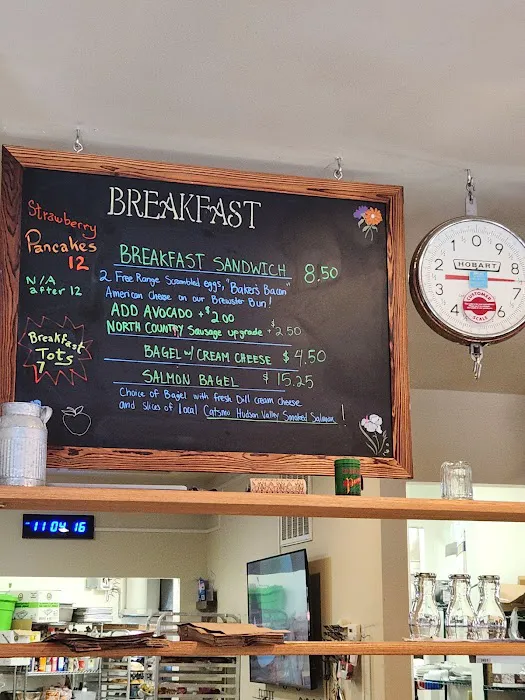 BREAKFAST
Strawberry
Pancakes
12
N/A
after 12
Breakfast
Tots
7
BREAKFAST SANDWICH 8.50
2 Free Range Scrambled eggs, "Baker's Bacon"
American Cheese on our Brewster Bun!
ADD AVOCADO +$2.00
NORTH COUNTRY Sausage upgrade +$2.50
BAGEL w/ CREAM CHEESE $4.50
SALMON BAGEL $15.25
Choice of Bagel with fresh Dill cream cheese
and slices of local Catsmo Hudson Valley Smoked Salmon!
1 0 9
2 HOBART 8
3 7
4 6
5
CUSTOMER
SCALE
11:04 16